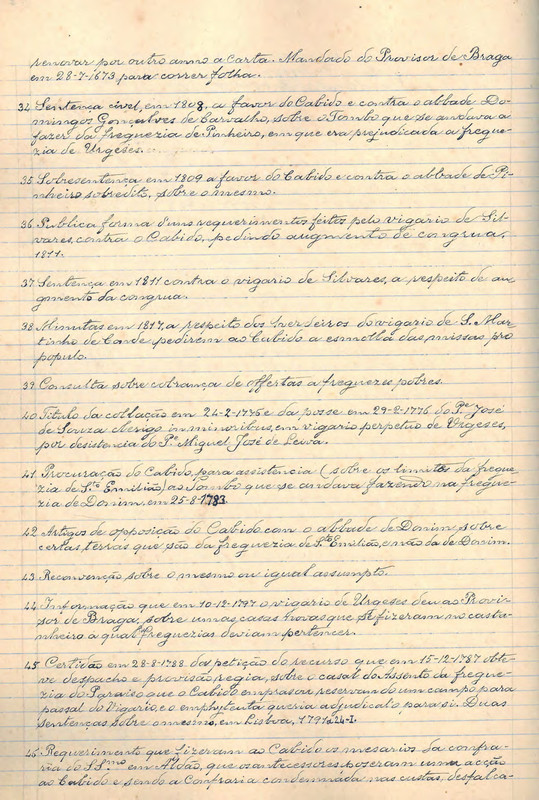 renovar por outro anno a carta. Mandado do Provisor de Braga
em 28-7-1673, para correr folha.
34 Sentença civel, em 1808, a favor do Cabido e contra o abbade Do-
mingos Gonçalves de Carvalho, sobre o Tombo que se andava a
fazer da freguezia de Pinheiro, em que era prejudicada a fregue-
zia de Urgeses.
35 Sobresentença em 1809 a favor do Cabido e contra o abbade de Pi-
nheiro sobredito, sobre o mesmo.
36 Publica forma d'uns requerimentos feitos pelo vigario de Sil-
vares, contra o Cabido, pedindo augmento de congrua,
1811.
37 Sentença em 1811 contra o vigario de Silvares, a respeito de au-
gmento da congrua.
38 Minutas em 1817, a respeito dos herdeiros do vigario de S. Mar-
tinho de Conde, pedirem ao Cabido a esmolla das missas pro
populo.
39 Consulta sobre cobrança de offertas a freguezes pobres.
40 Titulo da collação em 24-2-1776 e da posse em 29-2-1776 do Pe José
de Souza in minoribus, em vigario perpetuo de Urgeses,
por desistencia do Pe Miguel José de Leiva.
41 Procuração do Cabido, para assistencia (sobre os limites da fregue-
zia de Sto Emilião) ao Tombo que se andava fazendo na fregue-
zia de Donim, em 25-8-1783
42 Artigos de opposição do Cabido com o abbade de Donim sobre
certas, terras que são da freguezia de Sto Emilião, e não da de Donim.
43 Reconvenção sobre o mesmo ou igual assumpto.
44 Informação que em 10-12-1797 o vigario de Urgeses deu ao Provi-
sor de Braga, sobre umas casas novas que se fizeram no casta-
nheiro a qual freguezias deviam pertencer.
45 Certidão em 28-8-1788 da petição do recurso que em 15-12-1787 obte-
ve despacho e provisão regia, sobre o casal do Assento da fregue-
zia do Paraiso que o Cabido emprasou, reservando um campo para
passal do Vigario, e o emphyteuta queria adjudical-o para si. Duas
sentenças sobre o mesmo, em Lisboa, 1791 a 24-I.
46 Requerimento que fizeram ao Cabido os mesarios da confra-
ria do S. Smo em Atvão, que os antecessores poseram uma acção
ao Cabido e sendo a Confraria condemnada nas custas, desfalca-